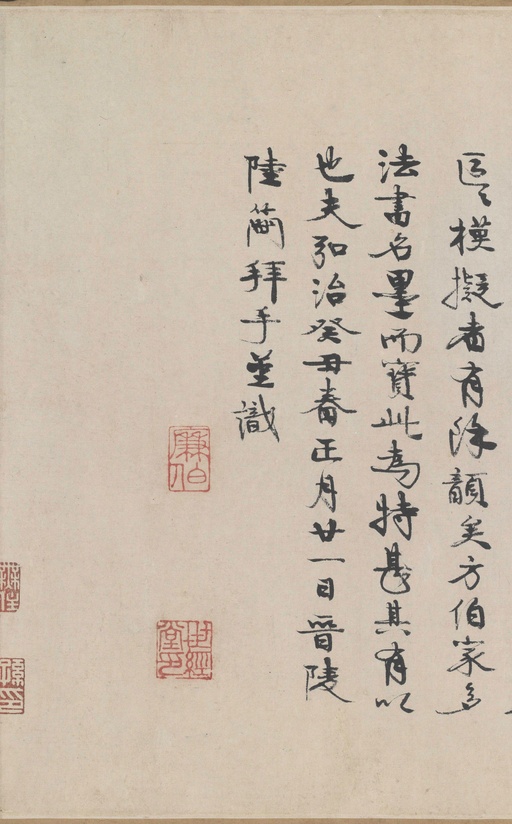 區區模擬者有除顥矣方伯家多
法書名墨而寶此為特甚其有以
也夫弘治癸丑春正月廿一日晉陵
陸簡拜手並識
廉伯
世經堂印